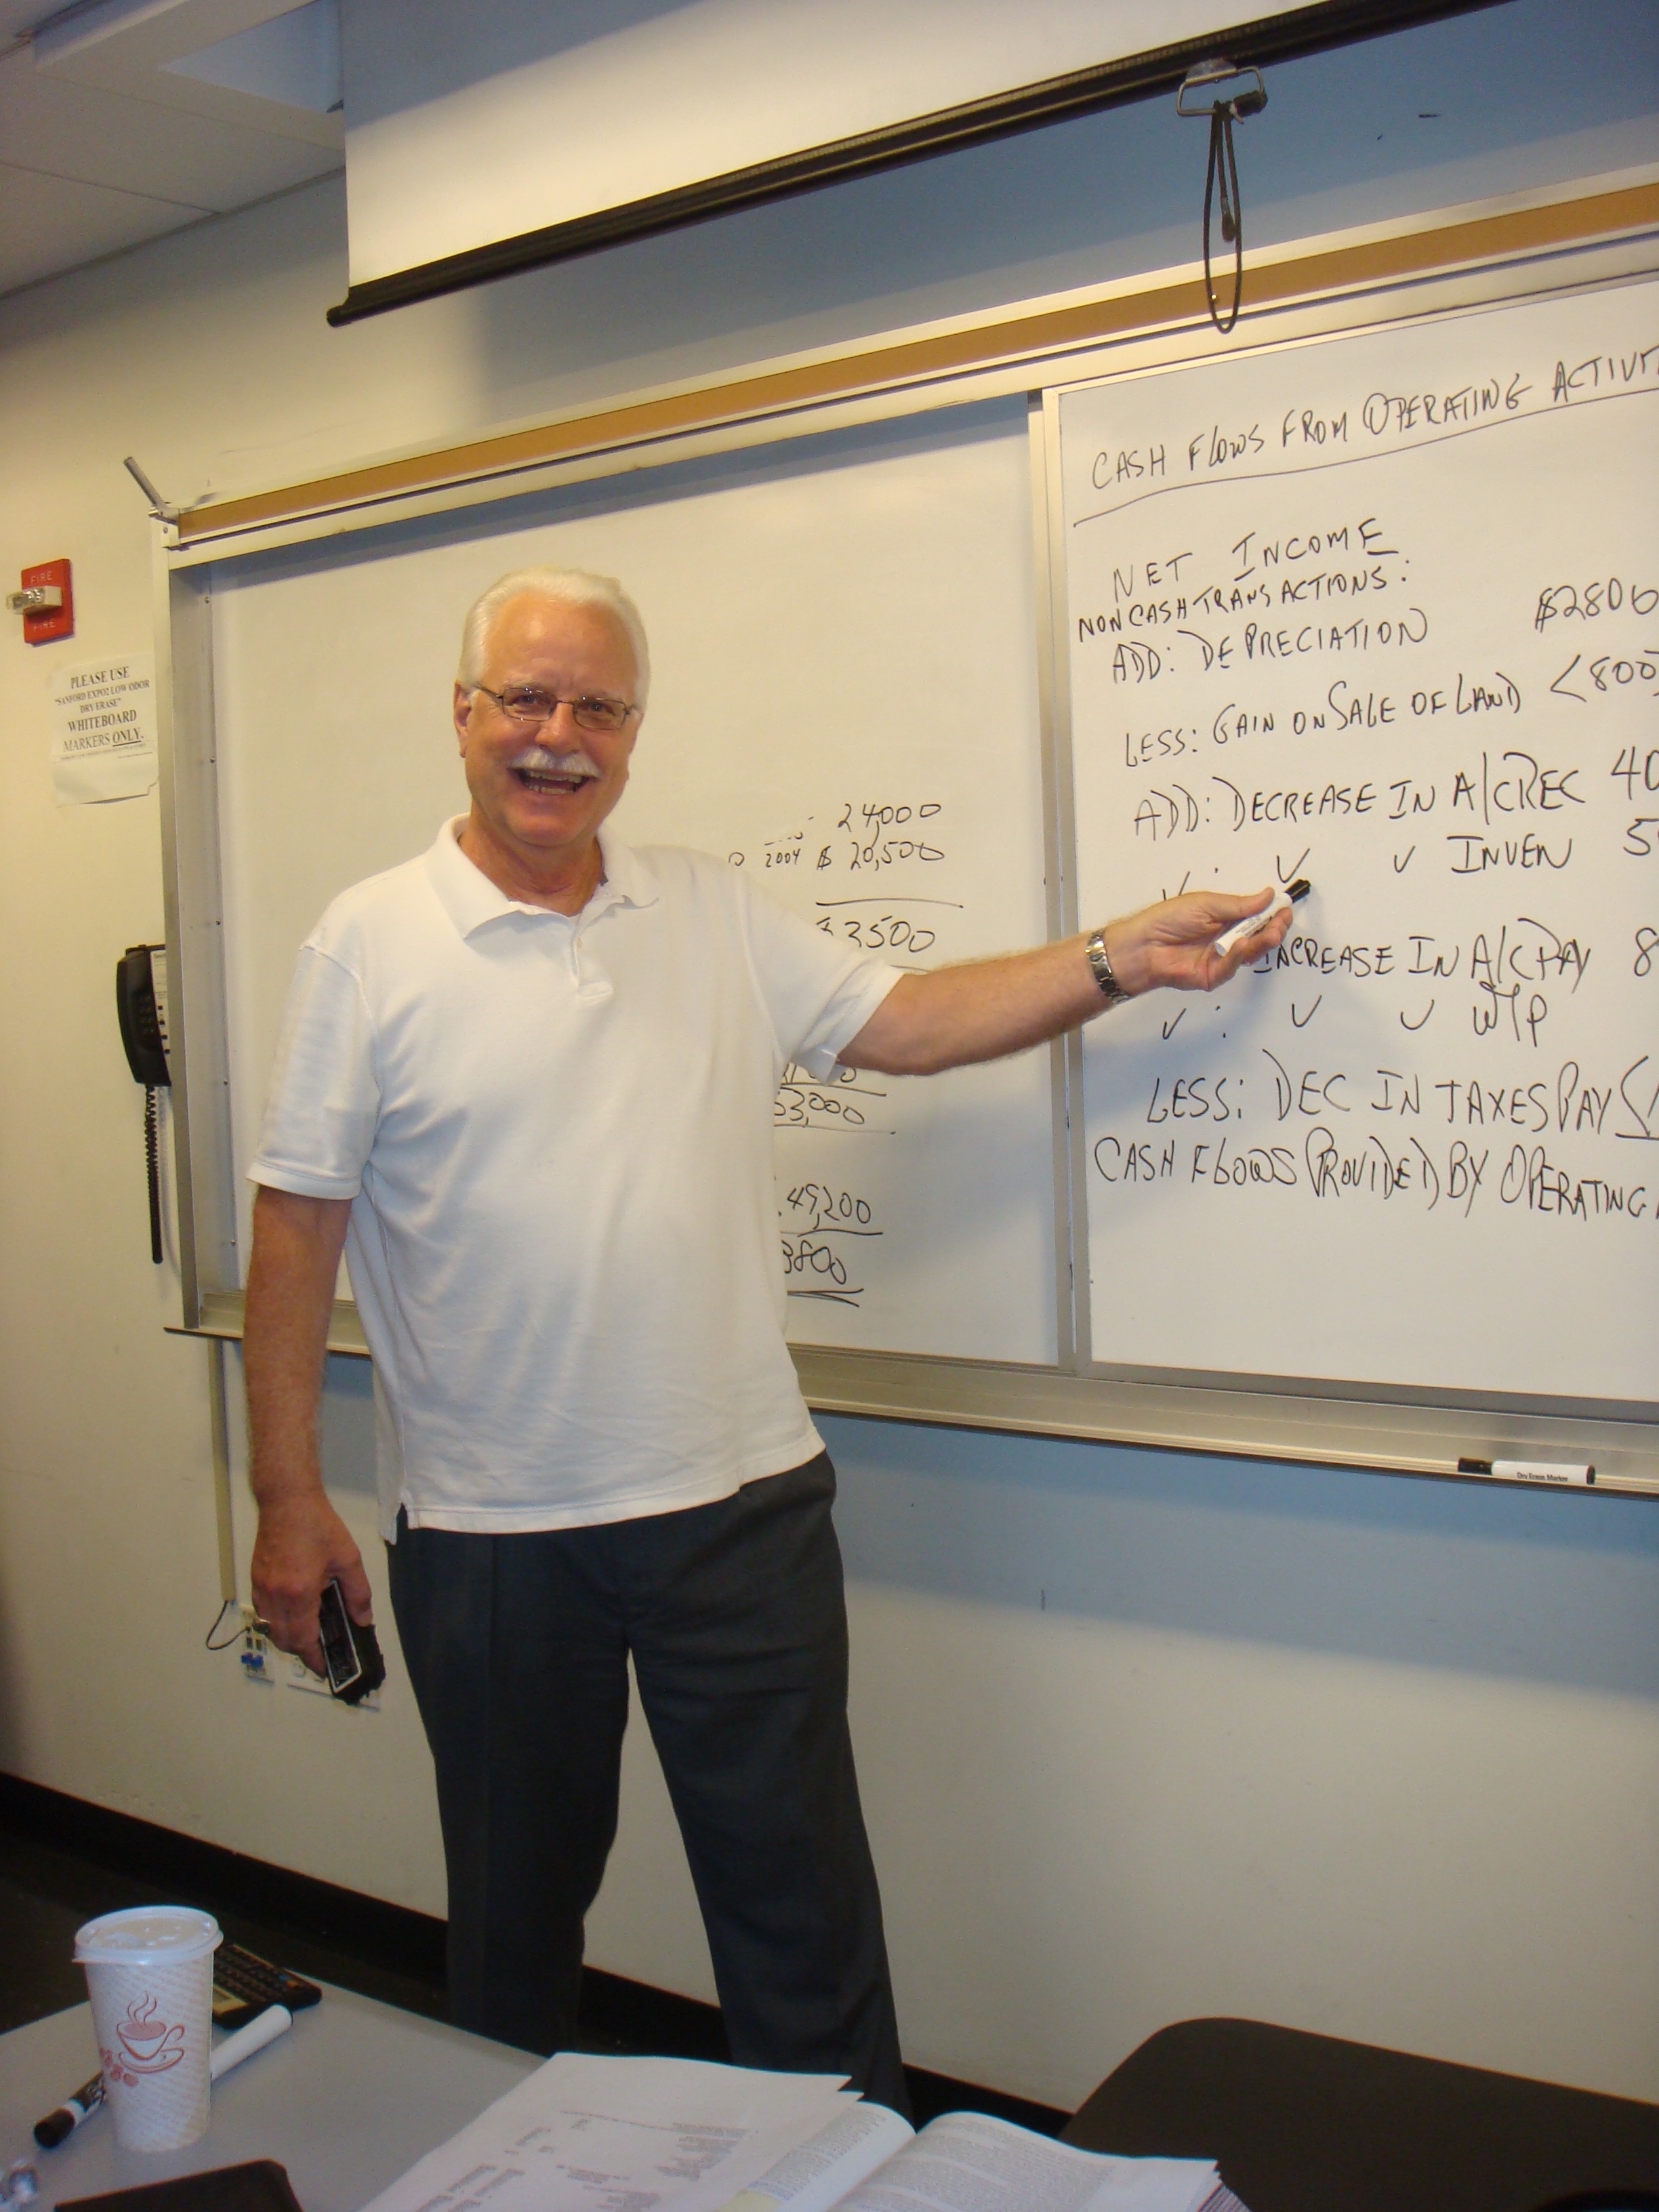 FIRE
FIRE
PLEASE USE
"SANFORD EXPO2 LOW ODOR
DRY ERASE"
WHITEBOARD
MARKERS ONLY.
24,000
2004 $ 20,500
3500
53,000
49,200
3800
CASH FLOWS FROM OPERATING ACTIVIT
NET INCOME
NONCASH TRANSACTIONS:
ADD: DEPRECIATION $2800
LESS: GAIN ON SALE OF LAND <800>
ADD: DECREASE IN A/CREC 40
✓ : ✓ ✓ INVEN 5
INCREASE IN A/CPAY 8
✓ : ✓ ✓ W/P
LESS: DEC IN TAXES PAY <1
CASH FLOWS PROVIDED BY OPERATING
Dry Erase Marker